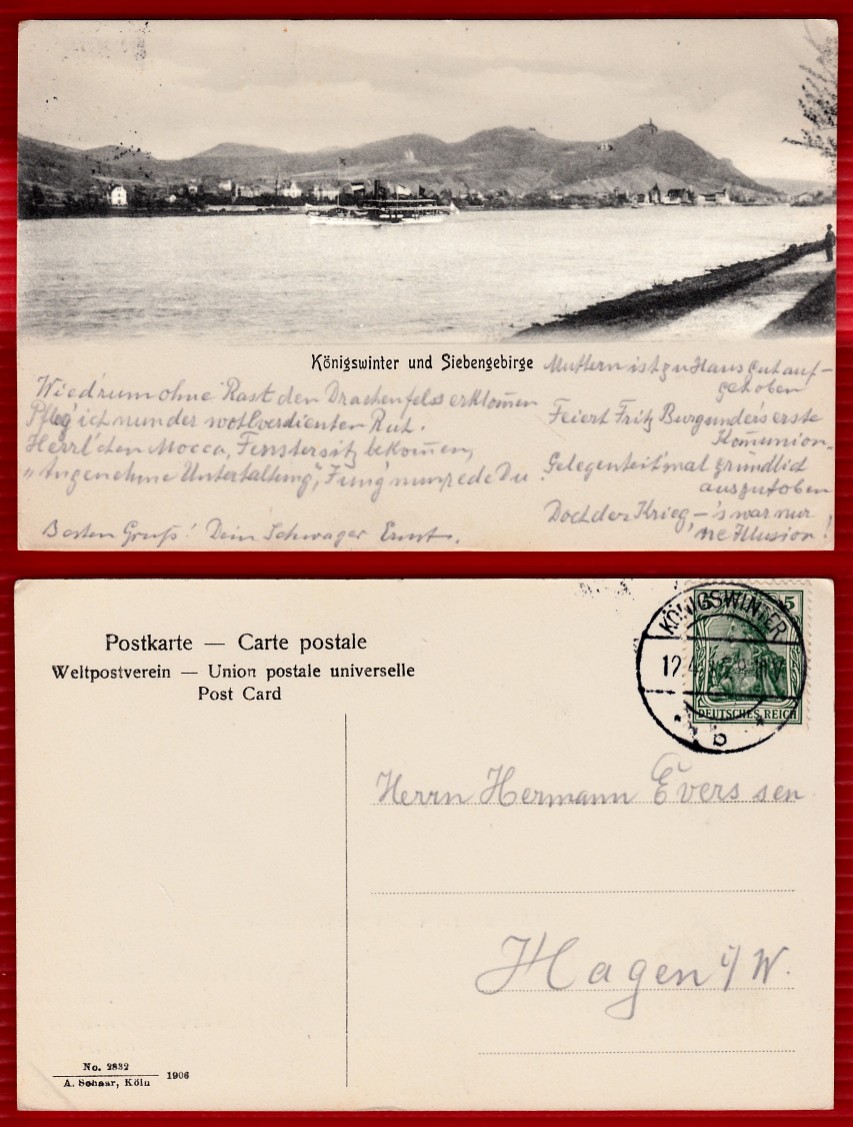 Königswinter und Siebengebirge
Wied'rum ohne Rast den Drachenfels erklom̅en
Pfleg' ich nun der wohlverdienten Ruh.
Herrl'chen Mocca, Fenstersitz bekom̅en,
"Angenehme Unterhaltung", Jung' nun rede Du.
Besten Gruß! Dein Schwager Ernst.
Muttern ist zu Haus gut auf-
gehoben
Feiert Fritz Burgunders erste
Kom̅union.
Gelegenheit 'mal gründlich
auszutoben
Doch der Krieg – 's war nur
'ne Illusion!
Postkarte — Carte postale
Weltpostverein — Union postale universelle
Post Card
KÖNIGSWINTER
12.4
b
5
DEUTSCHES REICH
Herrn Hermann Everssen
Hagen i/W.
No. 2832
A. Schaar, Köln 1906